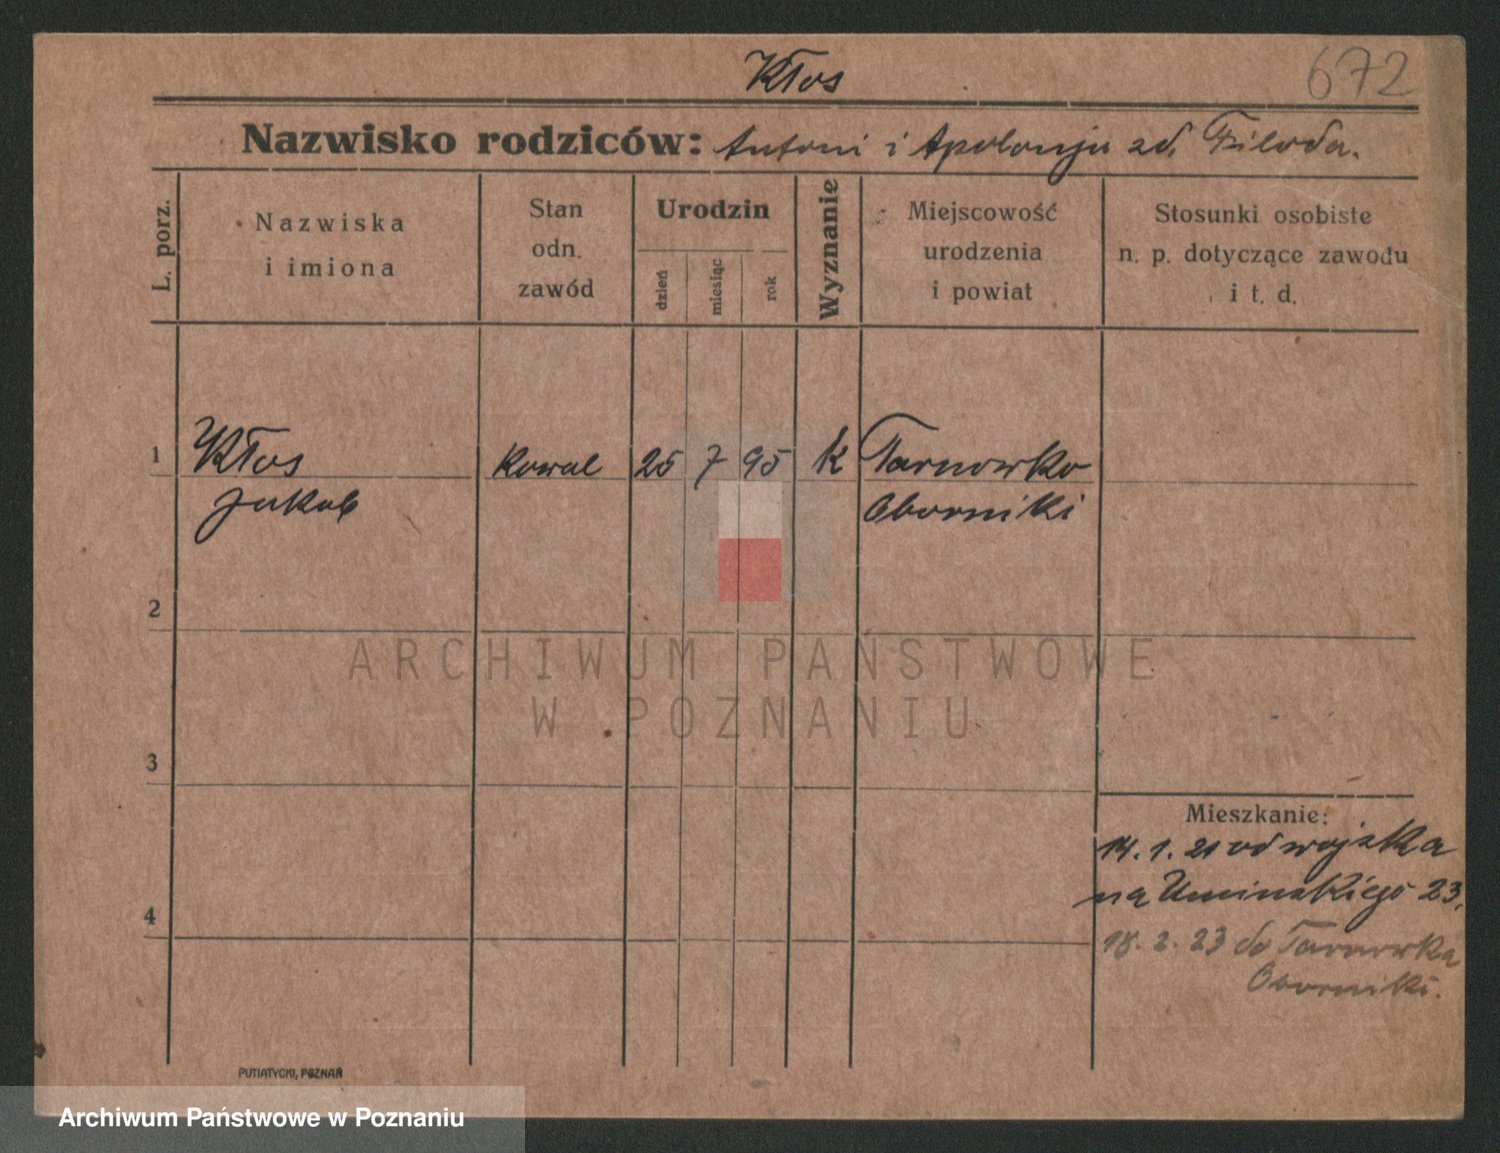 672
Kłos
Nazwisko rodziców: Antoni i Apolonja zd. Filoda.
L. porz.
Nazwiska
i imiona
Stan
odn.
zawód
Urodzin
dzień
miesiąc
rok
Wyznanie
Miejscowość
urodzenia
i powiat
Stosunki osobiste
n. p. dotyczące zawodu
i t. d.
1 Kłos kowal 25 7 95 k Tarnowko
Jakob Oborniki
2
3
4
Mieszkanie:
14. 1. 21 od wojska
na Umińskiego 23.
18. 2. 23 do Tarnowka
Oborniki.
PUTIATYCKI, POZNAŃ
ARCHIWUM PAŃSTWOWE
W POZNANIU
Archiwum Państwowe w Poznaniu